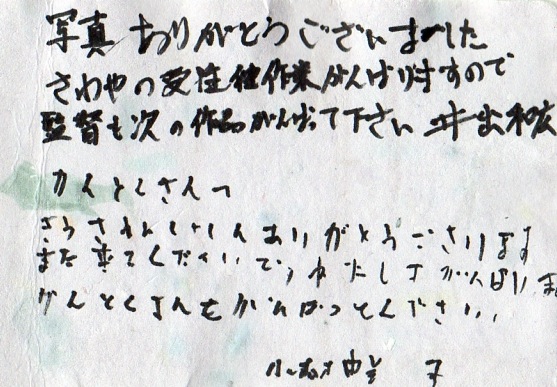 写真ありがとうございました
さわやの受注他作業がんばりますので
監督も次の作品がんばって下さい 井出和宏
かんとくさんへ
きょうさわしゃしんありがとうございます
また来てください わたしもがんばりま
かんとくさんもがんばってください
小林由 子